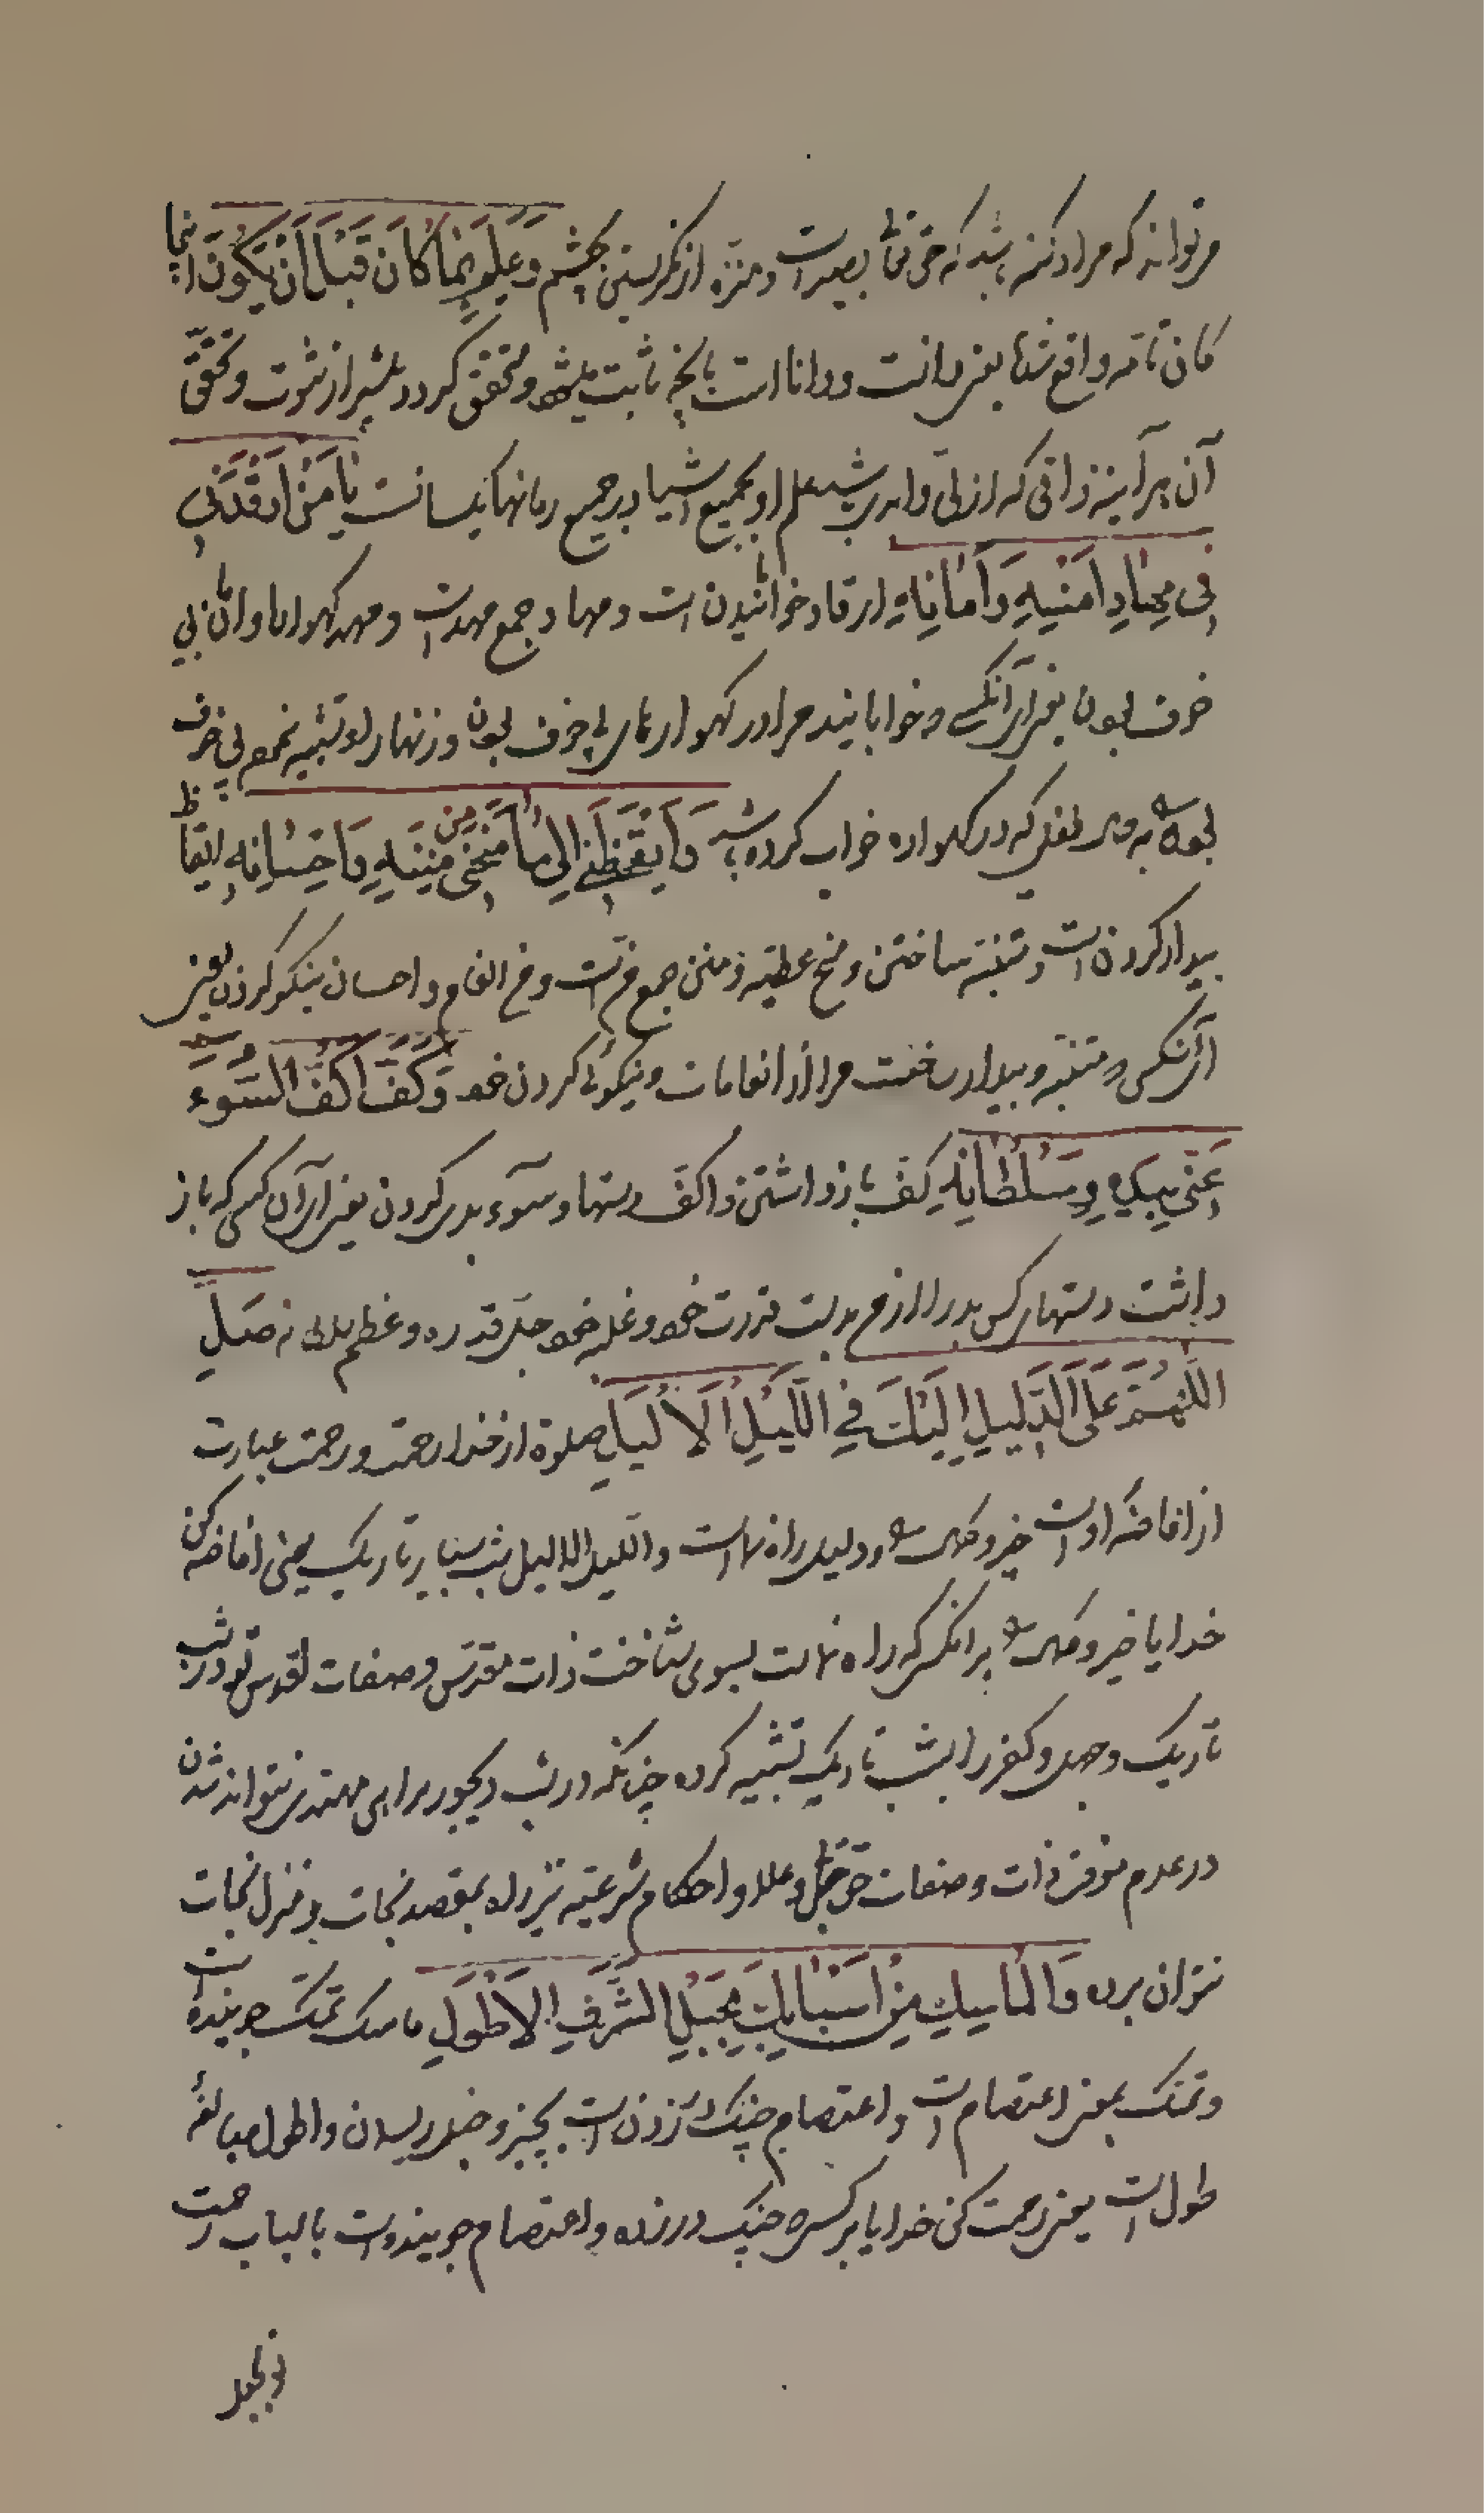 میتواند که مراد کنه باشد که حق تعالی بصیر است و منزه از نگریستن بچشم وَعَلِمَ بِمَا كَانَ قَبْلَ أَنْ يَكُونَ اینجا
کان تامه واقع شده یعنی دانست و دانا است بآنچه ثابت میشود و متحقق کردد پیش از ثبوت و تحقق
آن هر آینه ذاتی که ازلی و ابدی باشد علم او بجمیع اشیا در جمیع زمانها یکسانست يَا مَنْ أَرْقَدَنِي
فِي مِهَادِ أَمْنِهِ وَأَمَانِهِ ارقاد خوابانیدن است و مهاد جمع مهد است و مهد کهواره و امان بی
خوف بودن یعنی ای آنکسی که خوابانید مرا در کهوارهای بی خوف بودن و زنهار او تشبیه نموده بی خوف
بودن را به طفلی که در کهواره خواب کرده باشد وَأَيْقَظَنِي إِلَى مَا مَنَحَنِي مِنْ مِنَنِهِ وَإِحْسَانِهِ ایقاظ
بیدار کردن است و متنبه ساختن و منح عطیه و منن جمع منت است و انعام و احسان نیکو کردن یعنی
ای آنکسی که متنبه و بیدار ساخت مرا از انعامات و نیکوئی کردن خود وَكَفَّ أَكُفَّ السُّوءِ
عَنِّي بِيَدِهِ وَسُلْطَانِهِ کف باز داشتن و اکف دستها و سوء بدی کردن یعنی ای آن کسی که باز
داشت دستهای کس بد را از من بدست قدرت خود و غلبه خود جل قدره و عظم سلطانه صَلِّ
اللَّهُمَّ عَلَى الدَّلِيلِ إِلَيْكَ فِي اللَّيْلِ الْأَلْيَلِ صلوة از خدا رحمت و رحمت عبارت
از افاضه او است خیر و کمال را و دلیل راه نما است و اللیل الالیل شب بسیار تاریک یعنی افاضه کن
خدایا خیر و کمال را بر آنکس که راه نماست بسوی شناخت ذات مقدس و صفات اقدس تو در شب
تاریک و جهل و کفر را بشب تاریک تشبیه کرده چنانکه در شب دیجور براهی مهتدی نتواند شدن
در عدم معرفت ذات و صفات حق جل و علا و احکام شرعیه نیز راه بمقصد نجات و منزل نجات
نتوان برد وَالْمَاسِكِ مِنْ أَسْبَابِكَ بِحَبْلِ الشَّرَفِ الْأَطْوَلِ ماسک تمسک جوینده است
و تمسک بمعنی اعتصام است و اعتصام چنک زدن است بچیزی و حبل ریسمان و اطول مبالغه
طول است یعنی رحمت کن خدایا بر کسی که چنک در زده و اعتصام جوینده است باسباب رحمت